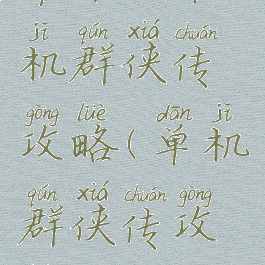 jī qún xiá chuán
机群侠传
gōng lüè dān jī
攻略(单机
qún xiá chuán gōng
群侠传攻